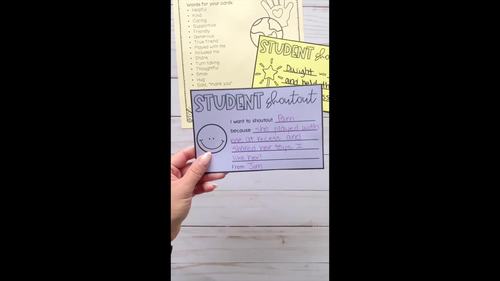 Words for your cards:
Helpful
Kind
Caring
Supportive
Friendly
Generous
True friend
Played with me
Included me
Share
Turn taking
Thoughtful
Smile
Hug
Said, "thank you"
STUDENT shoutout
Dwight was
and held the
STUDENT shoutout
I want to shoutout Pam
because she played with
me at recess and
shared her toys. I
like her!
From Jam